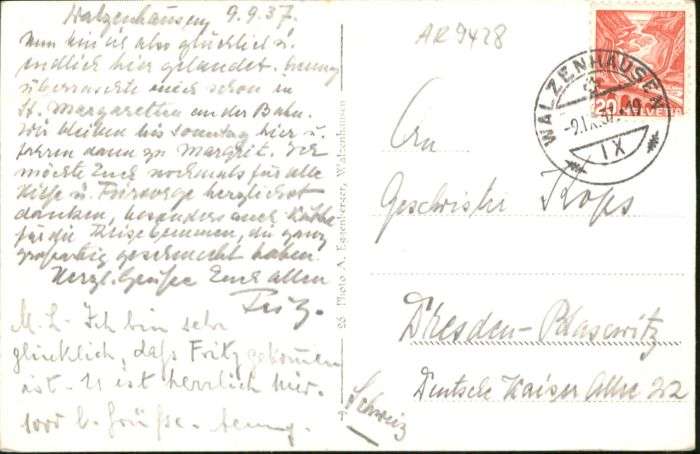 Walzenhausen, 9.9.37.
Nun bin ich also glücklich u.
endlich hier gelandet.
überraschte mich schon in
St. Margarethen an der Bahn.
Wir bleiben bis Sonntag hier u.
fahren dann zu Margrit. Ich
möchte Euch nochmals für alle
Hilfe u. Fürsorge herzlichst
danken, besonders auch Käthe
für die Reisebemmen, die ganz
großartig geschmeckt haben.
Herzl. Grüße Euch allen
Fritz.
M. L. Ich bin sehr
glücklich, daß Fritz gekommen
ist. Es ist herrlich hier.
1000 h. Grüße.
26 Photo A. Eggenberger, Walzenhausen
AR 9428
WALZENHAUSEN
-9.IX.37.-19
IX
20 HELVETIA
An
Geschwister Kops
Dresden-Blasewitz
Deutsche Kaiser Allee 22
Schweiz